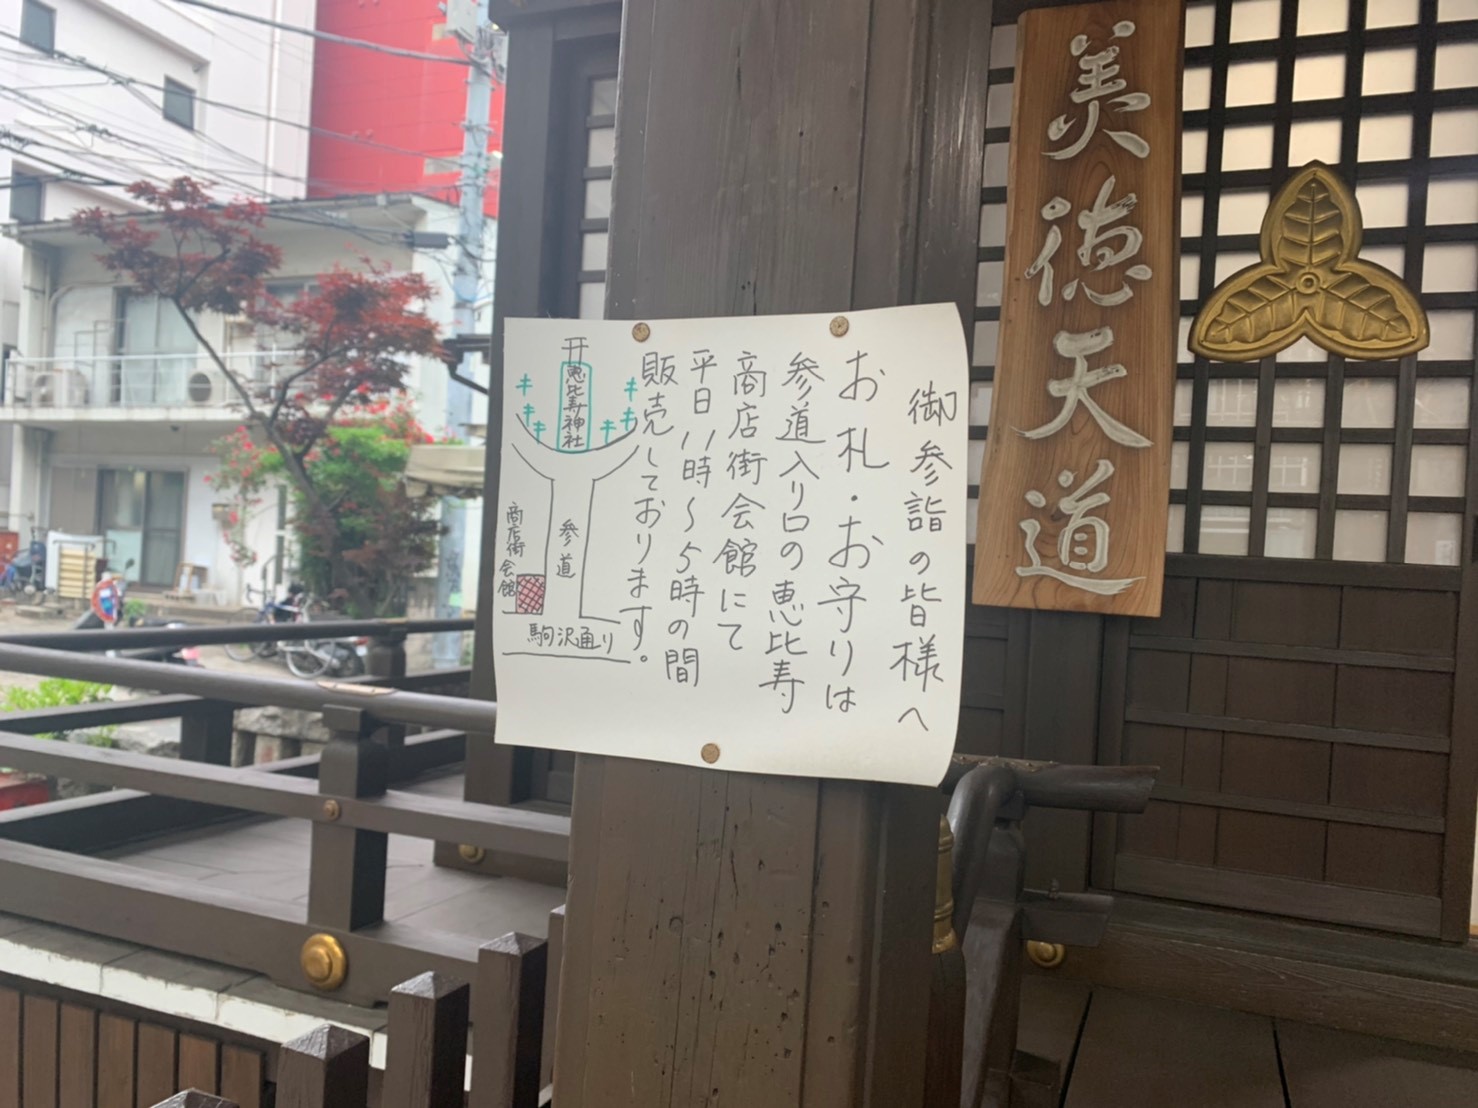 美徳天道
御参詣の皆様へ
お札・お守りは
参道入り口の恵比寿
商店街会館にて
平日11時～5時の間
販売しております。
恵比寿神社
参道
商店街会館
駒沢通り